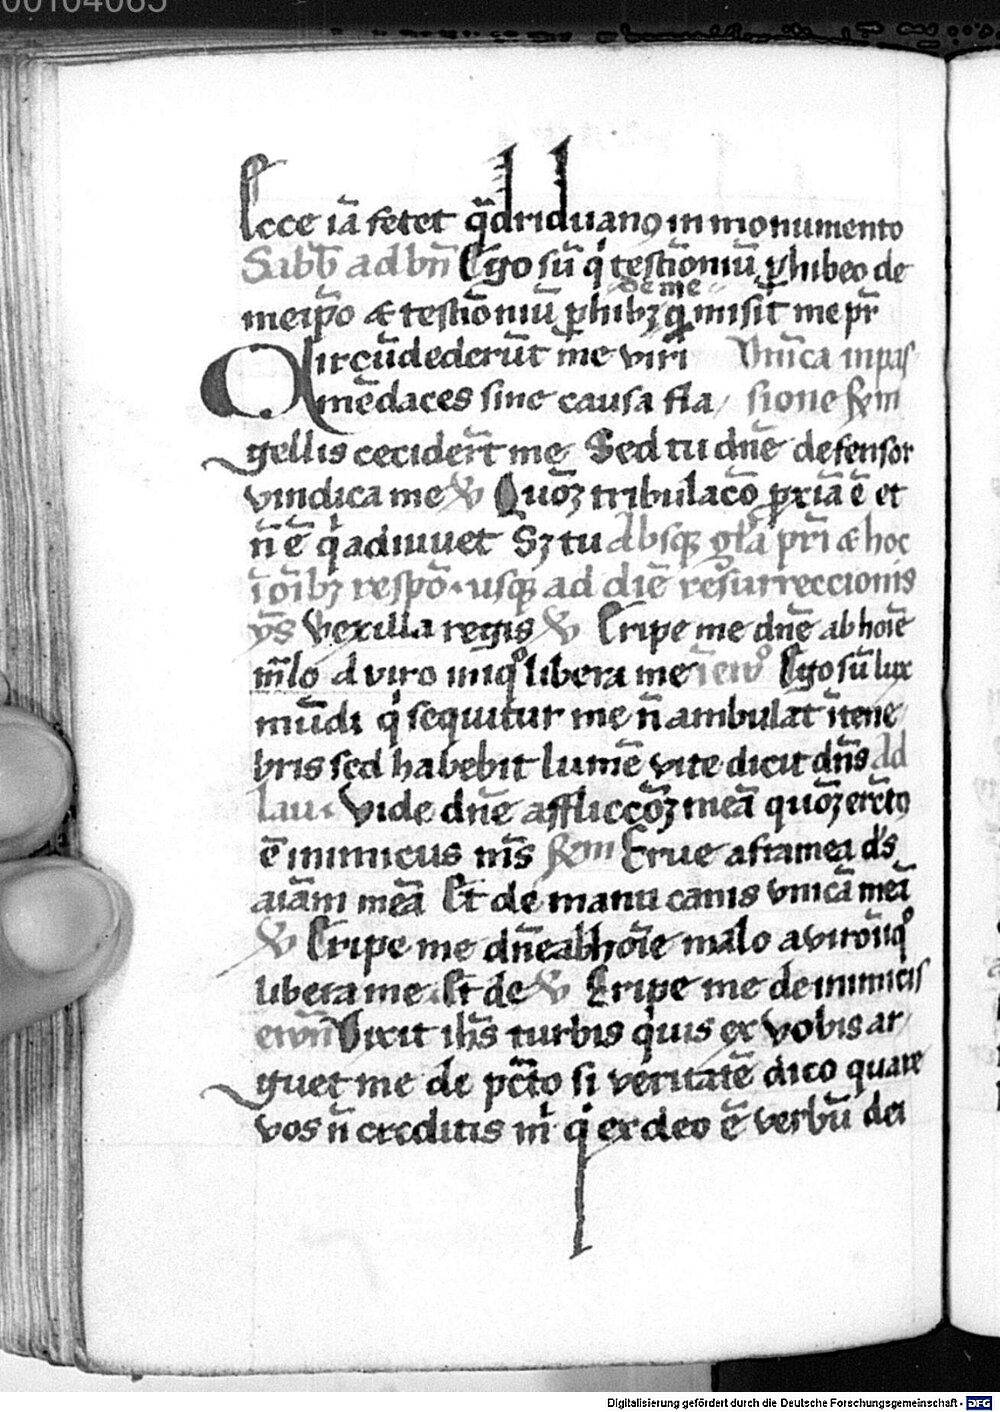 00104065
Ecce iā fetet q̄driduanꝯ in monumento
Sabb̄ ad bn̄ Ego sū qͥ testīoniū ꝑhibeo de
de me
meip̄o ⁊ testīoniū ꝑhibꝫ qͥ misit me pr̄
Circūdederūt me viri Dn̄ica in pas
mēdaces sine causa fla/ sione
gellis cecider̄t me Sed tu dn̄e defensor
vindica me ℣ Quōꝫ tribulacō ꝓxīa ē et
n̄ ē qͥ adiuuet Sꝫ tu Absqꝫ glā pr̄i ⁊ hoc
ī oībꝫ respō usqꝫ ad diē resurreccionis
ymꝰ Vexilla regis ℣ Eripe me dn̄e ab hoīe
mlo A viro iniqͦ libera me Ego sū lux
mūdi qͥ sequitur me n̄ ambulat ī tene
bris sed habebit lumē vite dicit dn̄s Ad
lau Vide dn̄e affliccōꝫ meā quōꝫ erc̄tꝯ
ē inimicus mꝰs Erue a framea ds̄
aīam meā Et de manu canis vnicā meā
℣ Eripe me dn̄e ab hoīe malo a viro īiqͦ
libera me Et de ℣ Eripe me de inimicis
ewn̄ Dixit ihs̄ turbis qͥuis ex vobis ar/
guet me de pc̄cto si veritatē dico quare
vos n̄ creditis mͥ qͥ ex deo ē verbū dei
Digitalisierung gefördert durch die Deutsche Forschungsgemeinschaft - DFG